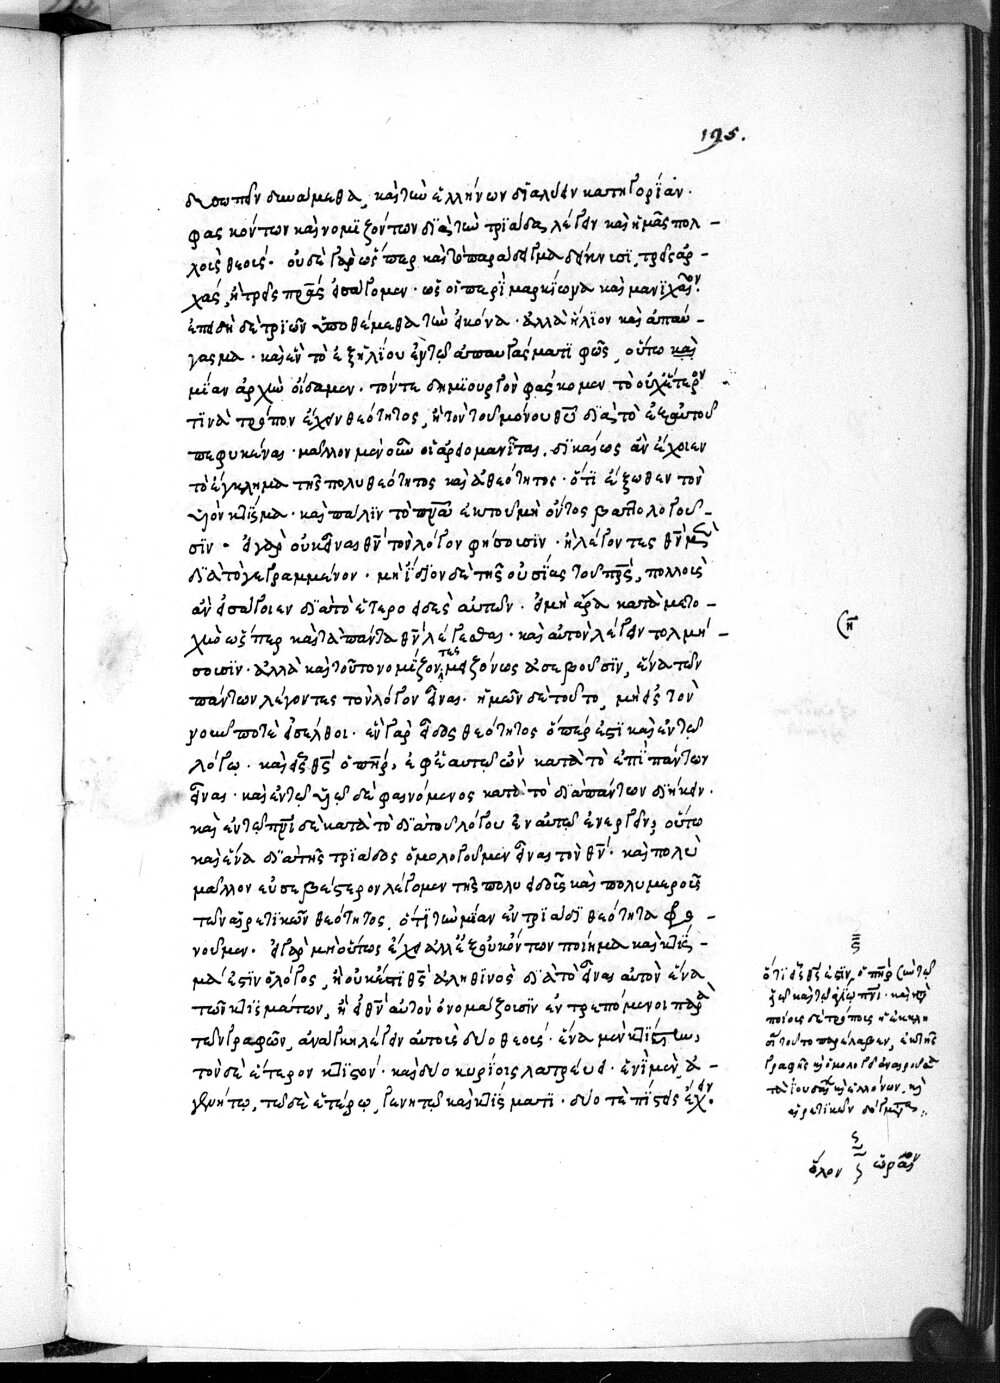 195.
δυσωπεῖν δυνάμεθα, καὶ τὴν ἑλλήνων διαλύειν κατηγορίαν·
φασκόντων καὶ νομιζόντων διὰ τὴν τριάδα, λέγειν καὶ ἡμᾶς πολ-
λοὺς θεούς· οὐδὲ γὰρ ὥσπερ καὶ τὸ παράδειγμα δείκνυσι, τρεῖς ἀρ-
χάς, ἢ τρεῖς πρας εἰσάγομεν· ὡς οἱ περὶ μαρκίωνα καὶ μανιχαῖον·
ἐπειδὴ δὲ τριῶν ὑποθέμεθα τὴν εἰκόνα· ἀλλὰ ἥλιον καὶ ἀπαύ-
γασμα· καὶ ἓν τὸ ἐξ ἡλίου ἐν τῷ ἀπαυγάσματι φῶς, οὕτω καὶ
μίαν ἀρχὴν οἴδαμεν· τόν τε δημιουργὸν φάσκομεν τὸ οὐχ ἕτερόν
τινα τρόπον ἔχειν θεότητος, ἢ τὸν τοῦ μόνου θυ διὰ τὸ ἐξ αὐτοῦ
πεφυκέναι· μᾶλλον μὲν οὖν οἱ ἀρειομανῖται, δικαίως ἂν ἔχοιεν
τὸ ἔγκλημα τῆς πολυθεότητος καὶ ἀθεότητος· ὅτι ἔξωθεν τὸν
υἱὸν κτίσμα· καὶ πάλιν τὸ πνα ἐκ τοῦ μὴ ὄντος βαττολογοῦ-
σιν· εἰ γὰρ οὐκ εἶναι θν τὸν λόγον φήσουσιν· ἢ λέγοντες θν μὲν
διὰ τὸ γεγραμμένον· μὴ ἴδιον δὲ τῆς οὐσίας τοῦ πρς, πολλοὺς
ἂν εἰσάγοιεν διὰ τὸ ἑτεροειδὲς αὐτῶν· εἰ μὴ ἄρα κατὰ μετο-
χὴν ὥσπερ καὶ τὰ πάντα θν λέγεσθαι· καὶ αὐτὸν λέγειν τολμή-
σουσιν· ἀλλὰ καὶ τοῦτο νομίζοντες, μειζόνως ἀσεβοῦσιν, ἕνα τῶν
πάντων λέγοντες τὸν λόγον εἶναι· ἡμῶν δὲ τοῦτο, μὴ εἰς τὸν
νοῦν ποτὲ εἰσέλθοι· ἓν γὰρ εἶδος θεότητος ὅπερ ἐστὶ καὶ ἐν τῷ
λόγῳ· καὶ εἷς θς ὁ πηρ, ἐφ' ἑαυτῷ ὢν κατὰ τὸ ἐπὶ πάντων
εἶναι· καὶ ἐν τῷ υἱῷ δὲ φαινόμενος κατὰ τὸ διὰ πάντων διήκειν·
καὶ ἐν τῷ πνι δὲ κατὰ τὸ διὰ τοῦ λόγου ἐν αὐτῷ ἐνεργεῖν, οὕτω
καὶ ἕνα διὰ τῆς τριάδος ὁμολογοῦμεν εἶναι τὸν θν· καὶ πολὺ
μᾶλλον εὐσεβέστερον λέγομεν τῆς πολυειδοῦς καὶ πολυμεροῦς
τῶν αἱρετικῶν θεότητος, ὅτι τὴν μίαν ἐν τριάδι θεότητα φρο-
νοῦμεν· εἰ γὰρ μὴ οὕτως ἔχει ἀλλ' ἐξ οὐκ ὄντων ποίημα καὶ κτίσ-
μα ἐστιν ὁ λόγος, ἢ οὐκ ἔστι θς ἀληθινὸς διὰ τὸ εἶναι αὐτὸν ἕνα
τῶν κτισμάτων, ἢ εἰ θν αὐτὸν ὀνομάζουσιν ἐντρεπόμενοι παρὰ
τῶν γραφῶν, ἀνάγκη λέγειν αὐτοὺς δύο θεούς· ἕνα μὲν κτίστην,
τὸν δὲ ἕτερον κτιστόν· καὶ δυο κυρίοις λατρεύει· ἑνὶ μὲν, ἀ-
γενήτῳ, τῷ δὲ ἑτέρῳ, γενητῷ καὶ κτίσματι· δύο τὲ πίστεις ἔχειν·
ὅτι εἷς θς ἐστιν, ὁ πηρ σὺν τῷ
υἱῷ καὶ τῷ ἁγίῳ πνι· καὶ
ποίοις δὲ τρόποις ἡ ἐκκλη
σία τοῦτο παρέλαβεν, ἐκ τῆς
γραφῆς
τὰ ἰουδαί καὶ ἑλλήνων, καὶ
αἱρετικῶν
ὅλον ὡραῖον